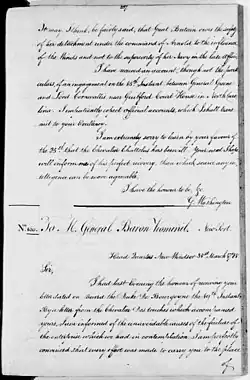 It may I think, be fairly said, that Great Britain owes the safety
of her detachment under the command of Arnold to the influence
of the Winds and not to the superiority of her Navy in the late affair.
I have received an account, though not the particulars
of an engagement on the 15th Instant between General Greene
and Lord Cornwallis near Guilford Court House in No. Carolina.
I am
official accounts, which I shall transmit
to your Excellency.
I am extremely sorry to learn by your favor of
the 25th that the Chevalier Chattelus has been ill. Your next I hope
will inform me of his perfect recovery, than which scarce any intelligence
can be more agreeable.
I have the honor to be &c
G. Washington
To M. General Baron Viomenil. Newport.
Head Quarters New Windsor 31st March 1781
Sir,
I had last evening the honour of receiving your
letter dated on board the Duke de Bourgogne the
Instant
letter from the Chevalier Des touches which accompanied
yours, I was informed of the unavoidable causes of the failure of
the enterprise which we had in contemplation. I am perfectly
convinced that every effort was made to carry you to the place
of